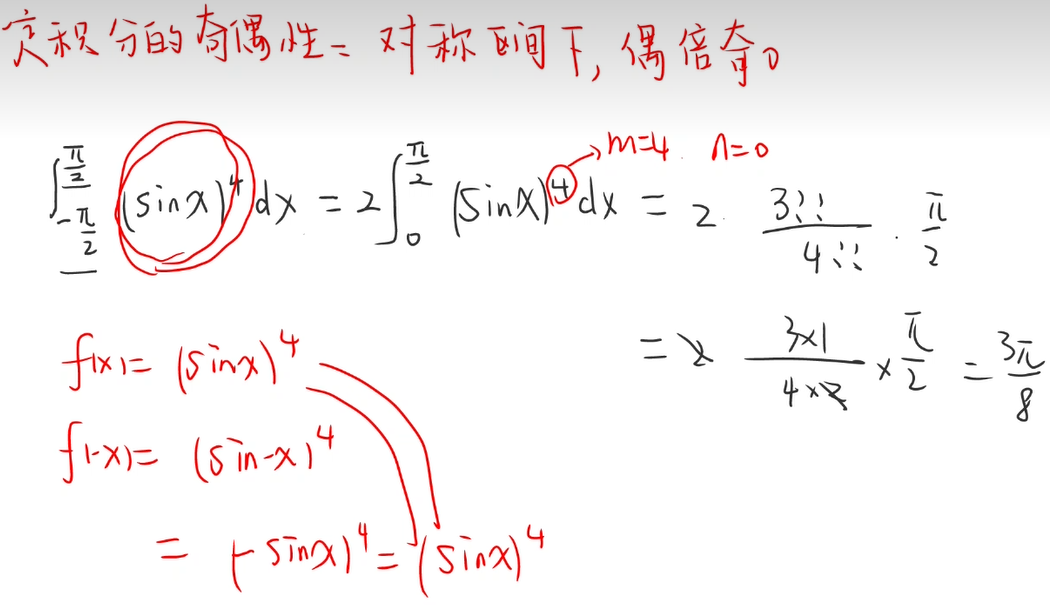 定积分的奇偶性: 对称区间下, 偶倍奇0
∫_{-π/2}^{π/2} (sinx)^4 dx = 2∫_0^{π/2} (sinx)^4 dx = 2 · 3!!/4!! · π/2
m=4 n=0
= 2 3×1/4×2 × π/2 = 3π/8
f(x)= (sinx)^4
f(-x)= (sin-x)^4
= (-sinx)^4 = (sinx)^4